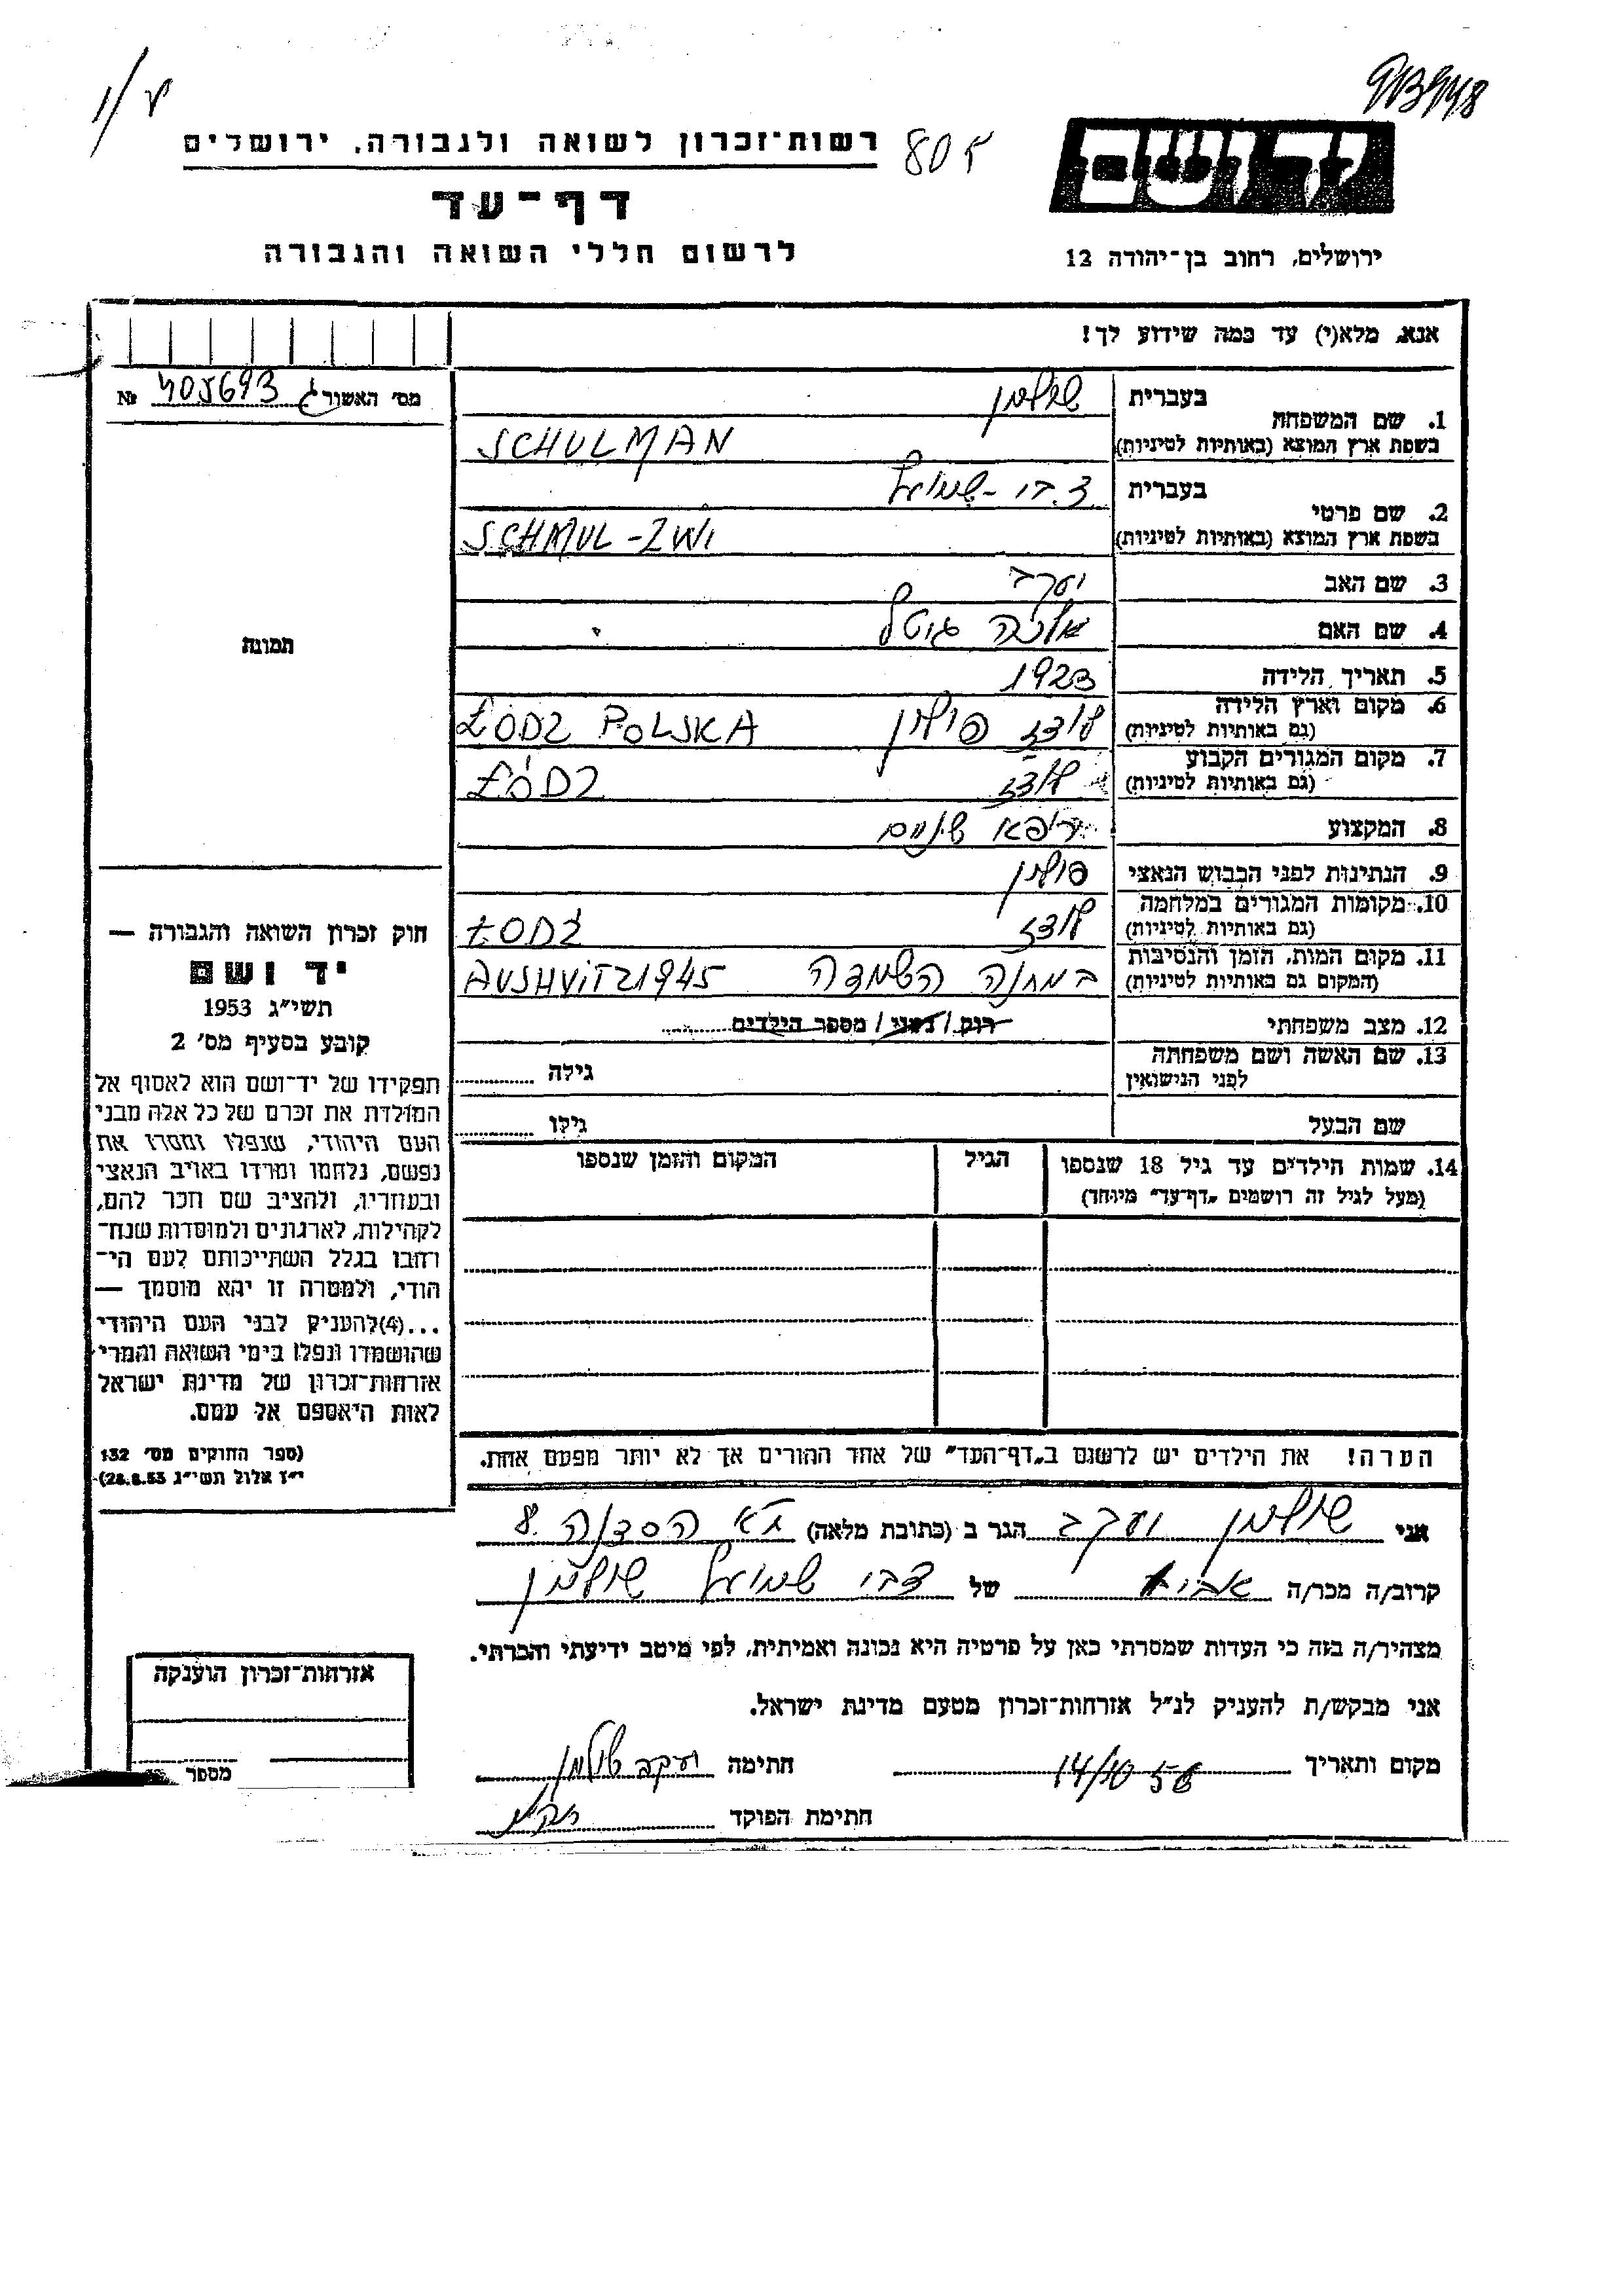 רשות-זכרון לשואה ולגבורה, ירושלים
805
דף-עד
לרשום חללי השואה והגבורה
יד ושם
ירושלים, רחוב בן-יהודה 12
אנא, מלא(י) עד כמה שידוע לך!
מס' האשור ג 405693 №
1. שם המשפחה בעברית שולמן
בשפת ארץ המוצא (באותיות לטיניות) SCHULMAN
2. שם פרטי בעברית צבי-שמואל
בשפת ארץ המוצא (באותיות לטיניות) SCHMUL-ZWI
3. שם האב יעקב
4. שם האם גיטל
5. תאריך הלידה 1923
6. מקום וארץ הלידה (גם באותיות לטיניות) לודז פולין ŁODZ POLSKA
7. מקום המגורים הקבוע (גם באותיות לטיניות) לודז ŁÓDZ
8. המקצוע רופא שינים
9. הנתינות לפני הכבוש הנאצי פולין
10. מקומות המגורים במלחמה (גם באותיות לטיניות) לודז ŁODŹ
11. מקום המות, הזמן והנסיבות (המקום גם באותיות לטיניות) במחנה השמדה AUSHVITZ 1945
12. מצב משפחתי רוק / נשוי / מספר הילדים
13. שם האשה ושם משפחתה לפני הנישואין גילה
שם הבעל גילו
14. שמות הילדים עד גיל 18 שנספו (מעל לגיל זה רושמים "דף-עד" מיוחד) הגיל המקום והזמן שנספו
תמונה
חוק זכרון השואה והגבורה —
יד ושם
תשי"ג 1953
קובע בסעיף מס' 2
תפקידו של יד-ושם הוא לאסוף אל
המולדת את זכרם של כל אלה מבני
העם היהודי, שנפלו ומסרו את
נפשם, נלחמו ומרדו באויב הנאצי
ובעוזריו, ולהציב שם וזכר להם,
לקהילות, לארגונים ולמוסדות שנח-
רחבו בגלל השתייכותם לעם הי-
הודי, ולמטרה זו יהא מוסמך —
...(4)להעניק לבני העם היהודי
שהושמדו ונפלו בימי השואה והמרי
אזרחות-זכרון של מדינת ישראל
לאות היאספם אל עמם.
(ספר החוקים מס' 132
י"ז אלול תשי"ג 28.8.53)
הערה! את הילדים יש לרשום ב"דף-העד" של אחד ההורים אך לא יותר מפעם אחת.
אני שולמן יעקב הגר ב (כתובת מלאה) ת"א הסדנה 8
קרוב/ה מכר/ה אביו של צבי שמואל שולמן
מצהיר/ה בזה כי העדות שמסרתי כאן על פרטיה היא נכונה ואמיתית, לפי מיטב ידיעתי והכרתי.
אני מבקש/ת להעניק לנ"ל אזרחות-זכרון מטעם מדינת ישראל.
מקום ותאריך 14/10 56 חתימה יעקב שולמן
חתימת הפוקד
אזרחות-זכרון הוענקה
מספר